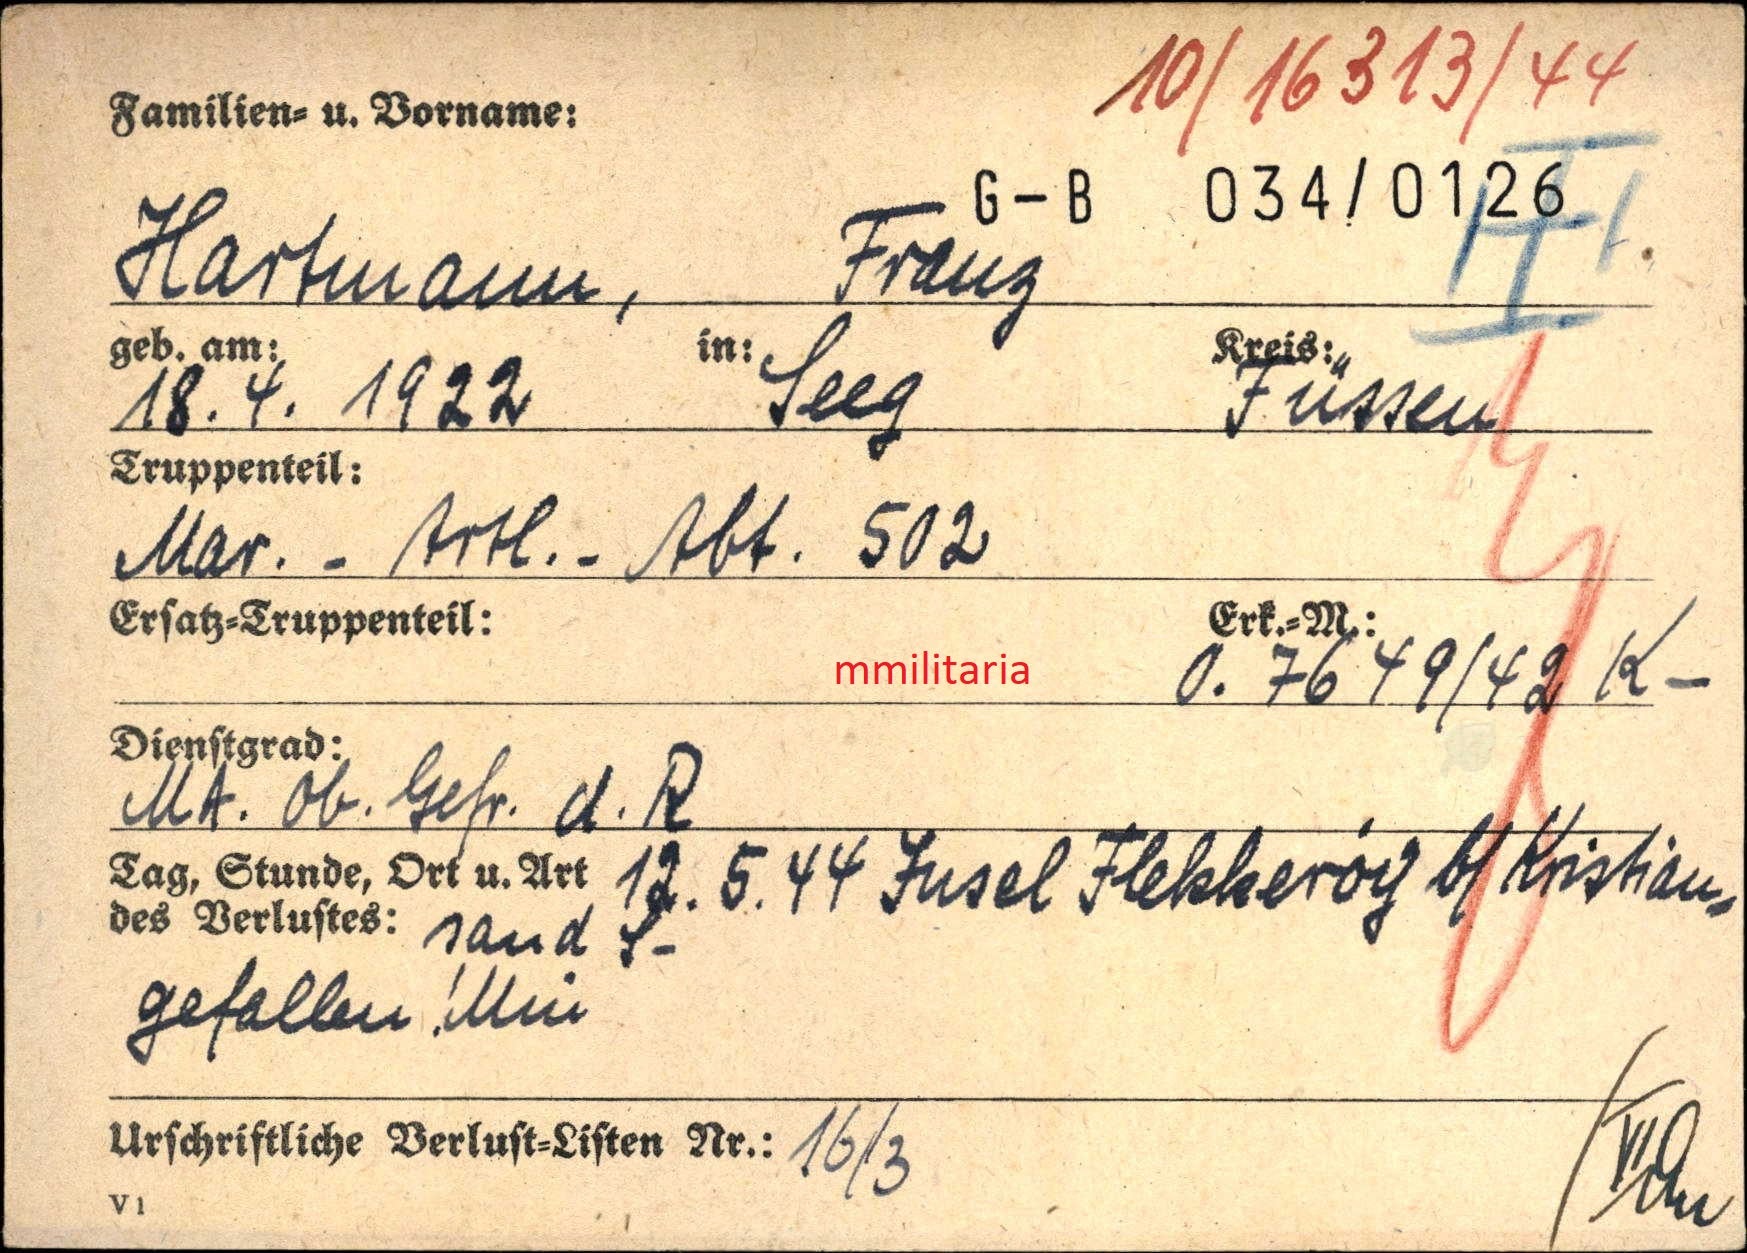 10/16313/44
Familien- u. Vorname:
G-B 034/0126
Hartmann, Franz
geb. am: in: Kreis:
18. 4. 1922 Seeg Füssen
Truppenteil:
Mar. - Artl. - Abt. 502
Ersatz-Truppenteil: Erk.-M.:
mmilitaria
O. 7649/42 K -
Dienstgrad:
MA. Ob. Gefr. d. R
Tag, Stunde, Ort u. Art 12. 5. 44 Insel Flekkeröy b/ Kristian-
des Verlustes: sand S-
gefallen
Urschriftliche Verlust-Listen Nr.: 16/3
V 1